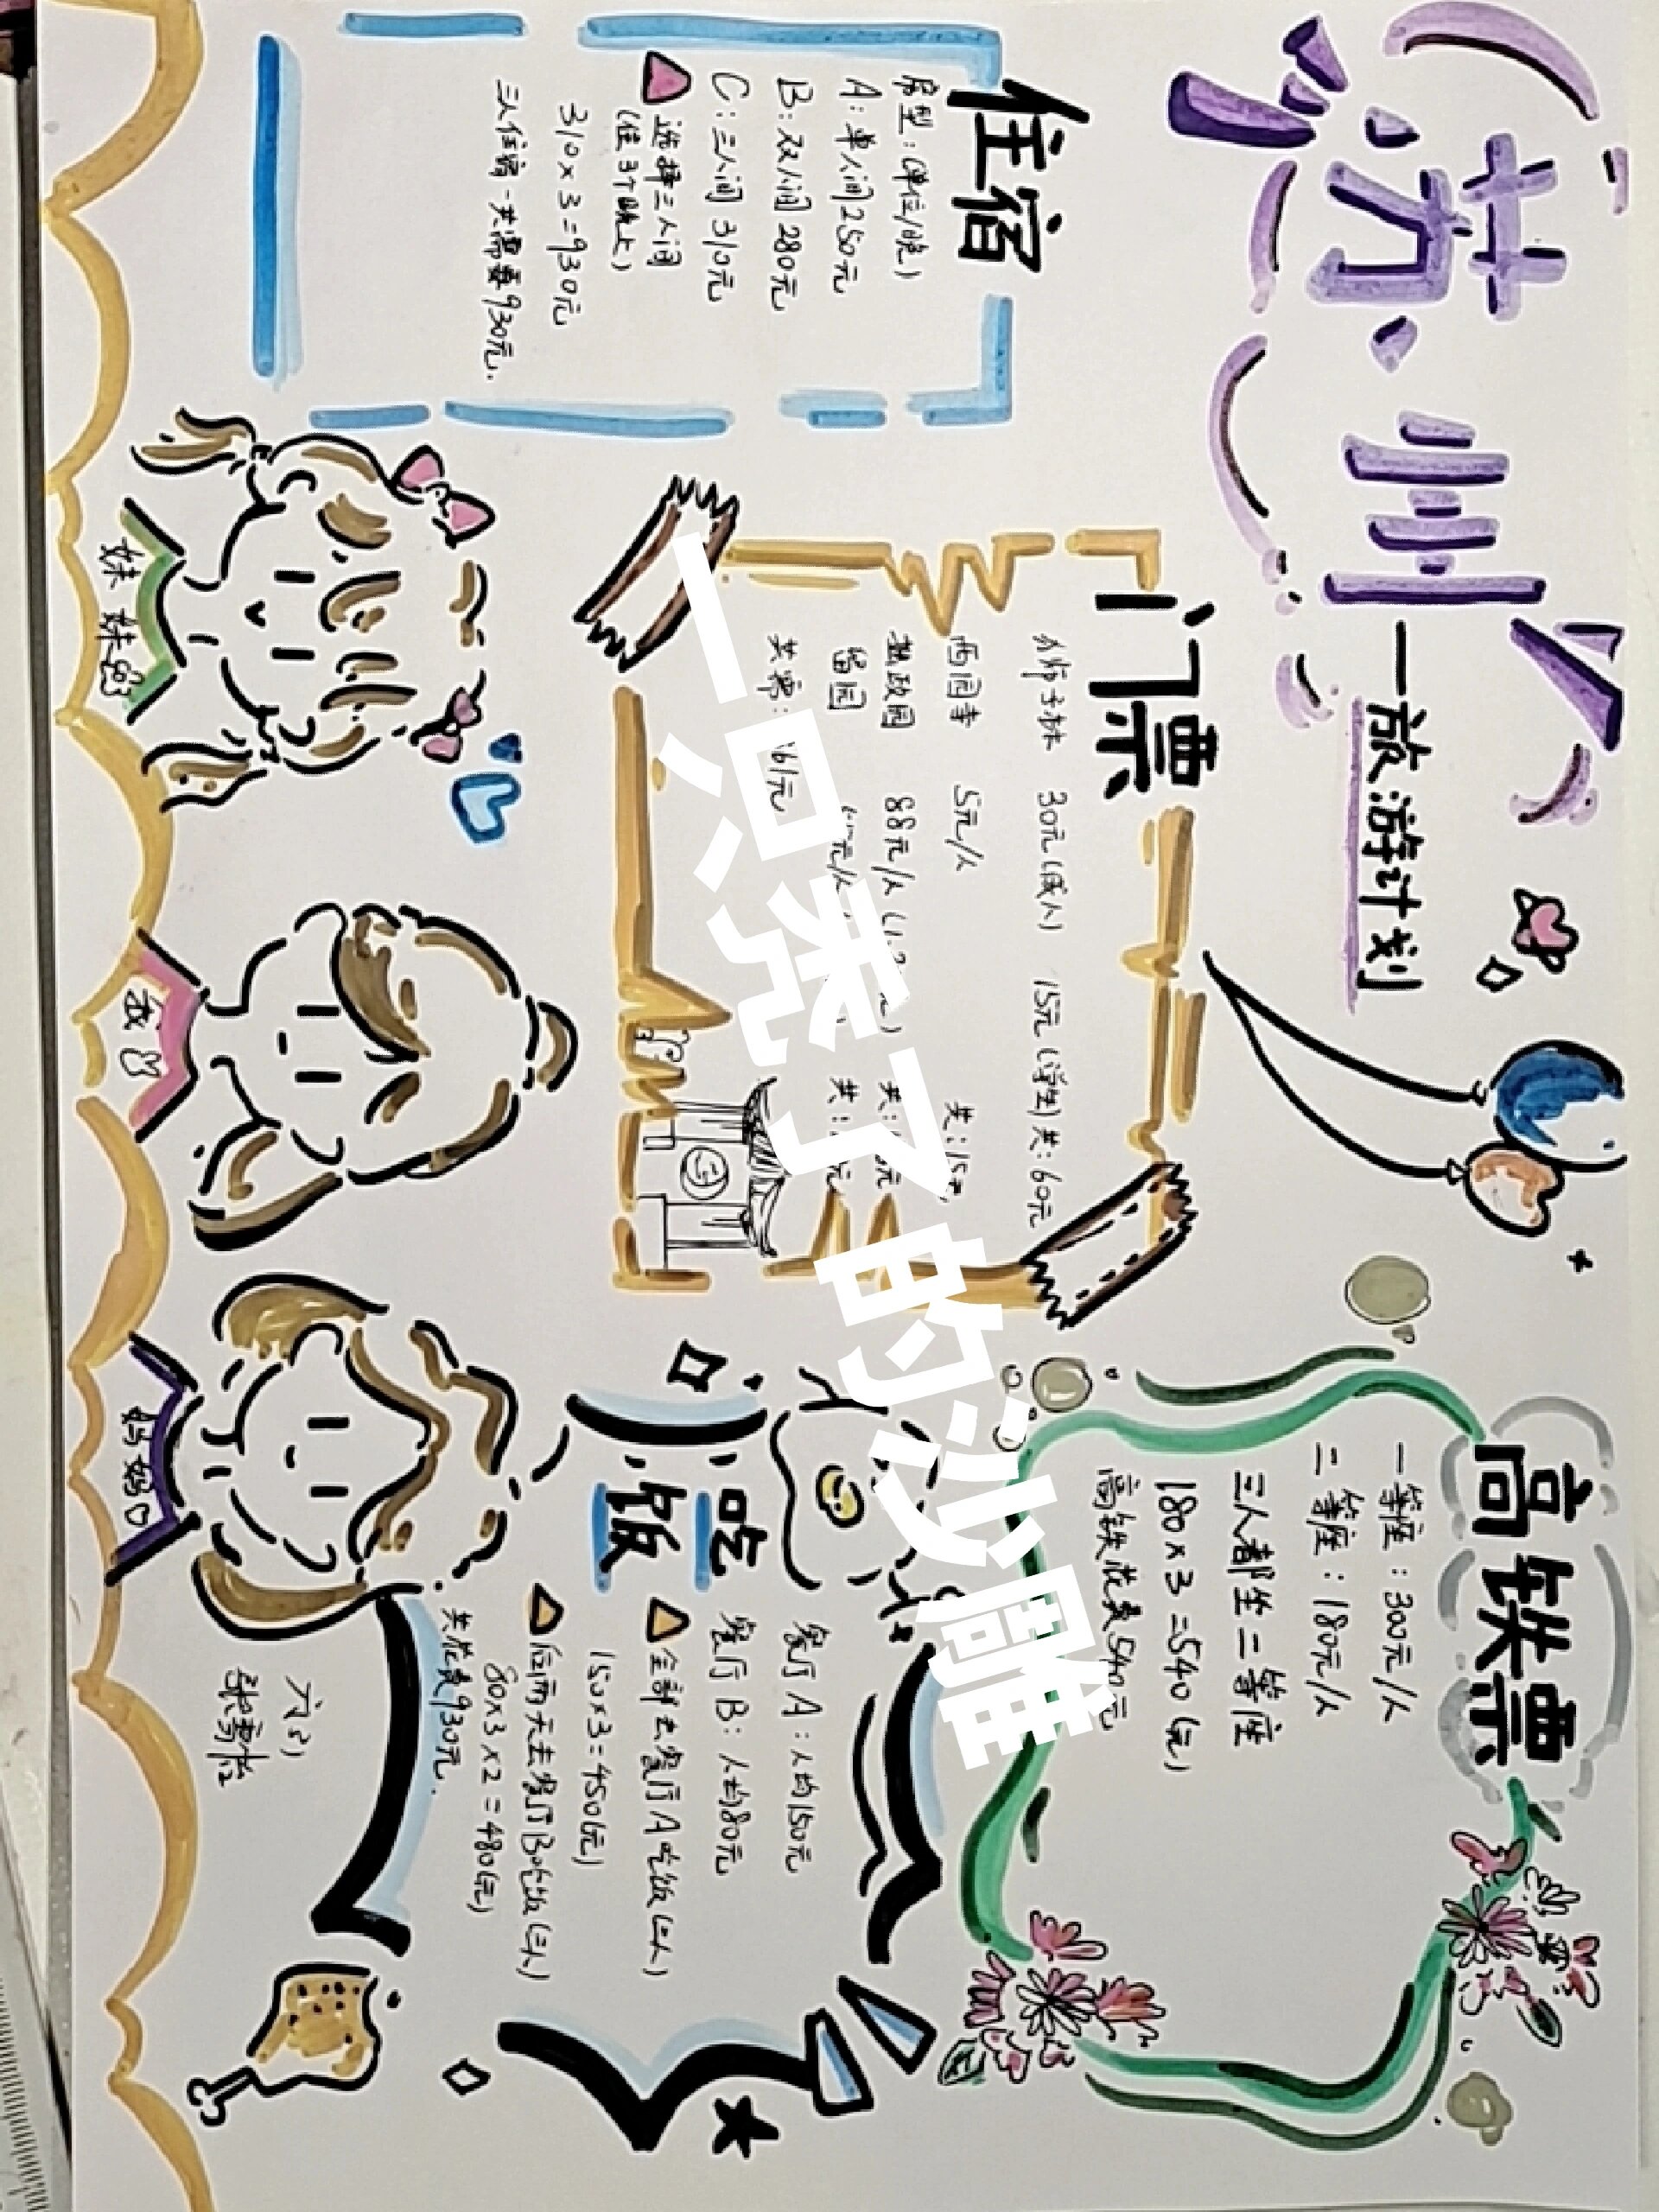 苏州
一旅游计划
住宿
房型：(单位/晚)
A：单人间250元
B：双人间280元
C：三人间310元
选择三人间
(住3个晚上)
310×3=930元
三人住宿一共需要930元.
门票
狮子林 30元(成人) 15元(学生) 共：60元
西园寺 5元/人 共：15元
拙政园 88元/人
留园
共需：
高铁票
一等座：300元/人
二等座：180元/人
三人都坐二等座
180×3=540(元)
高铁花费540元
吃饭
餐厅A：人均150元
餐厅B：人均80元
全部去餐厅A吃饭(三人)
150×3=450(元)
后两天去餐厅B吃饭(三人)
80×3×2=480(元)
共花费930元.
妹妹
我
妈妈
一只秃了的沙雕